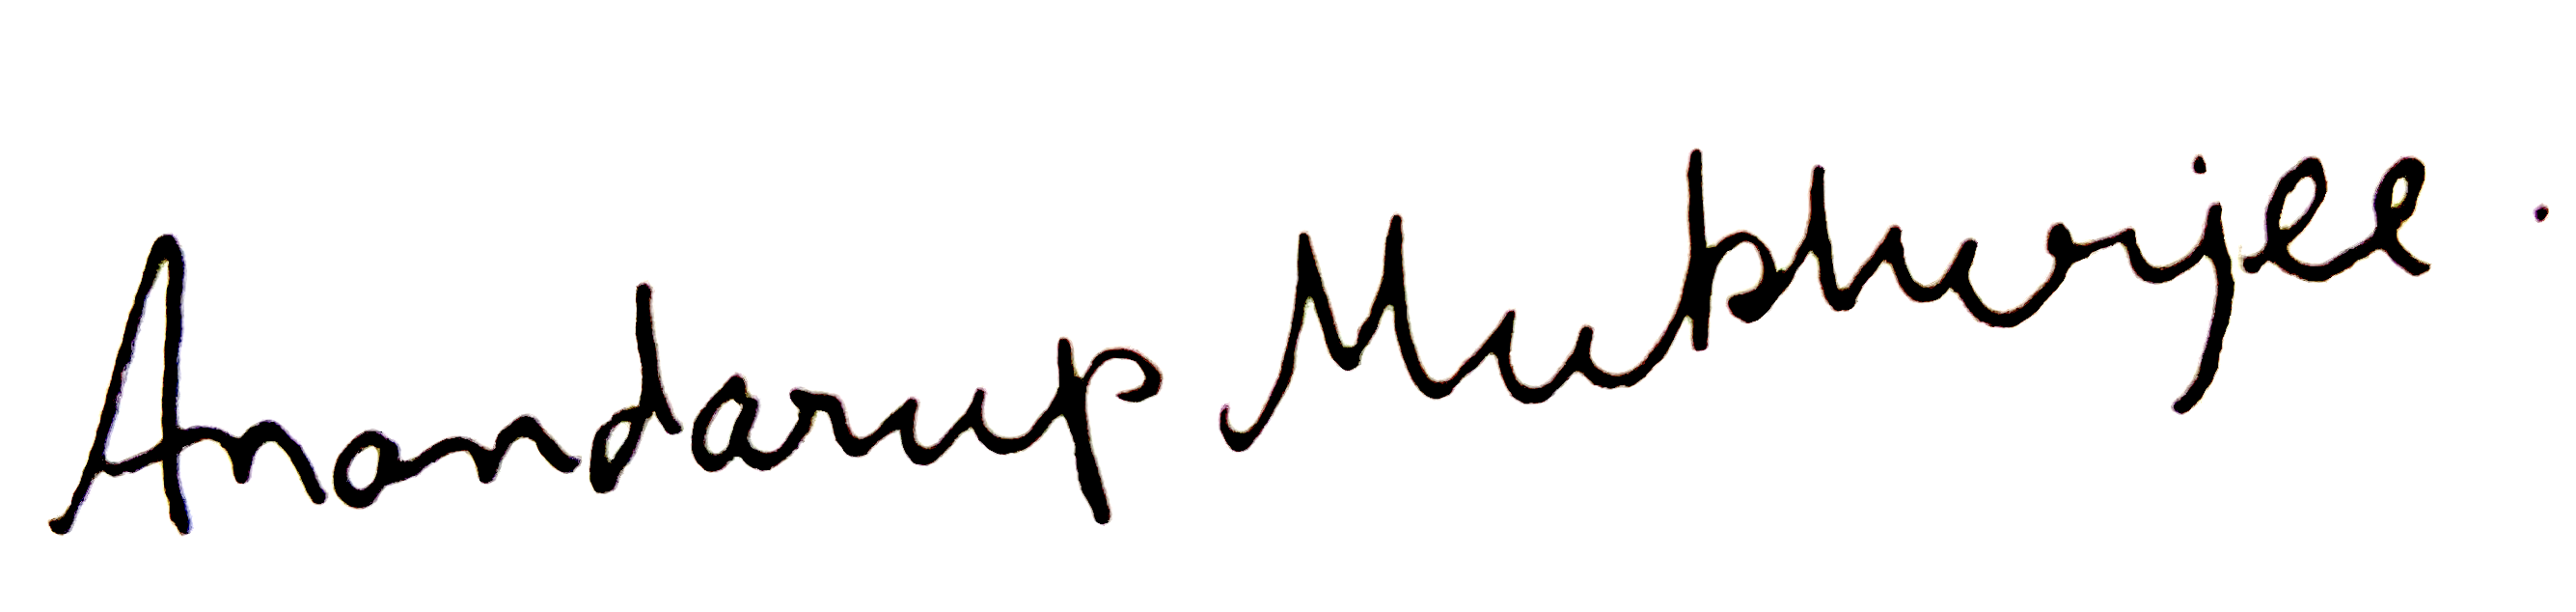 Anandarup Mukherjee.